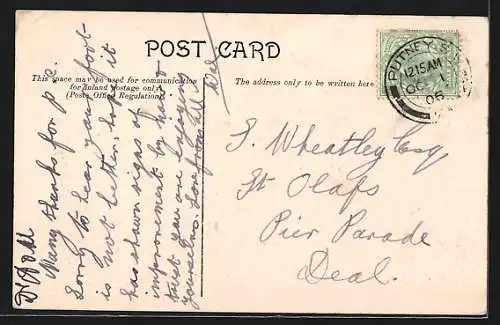 POST CARD
This space may be used for communication
for Inland postage only,
(Post Office Regulation)
The address only to be written here
PUTNEY S.W.
12.15 AM
OC 1
06
Many thanks for p.c.
Sorry to hear your foot
is not better, hope it
has shown signs of
improvement by now
trust you are enjoying
yourselves. Love from all
J. Wheatley Esq
St Olafs
Pier Parade
Deal.